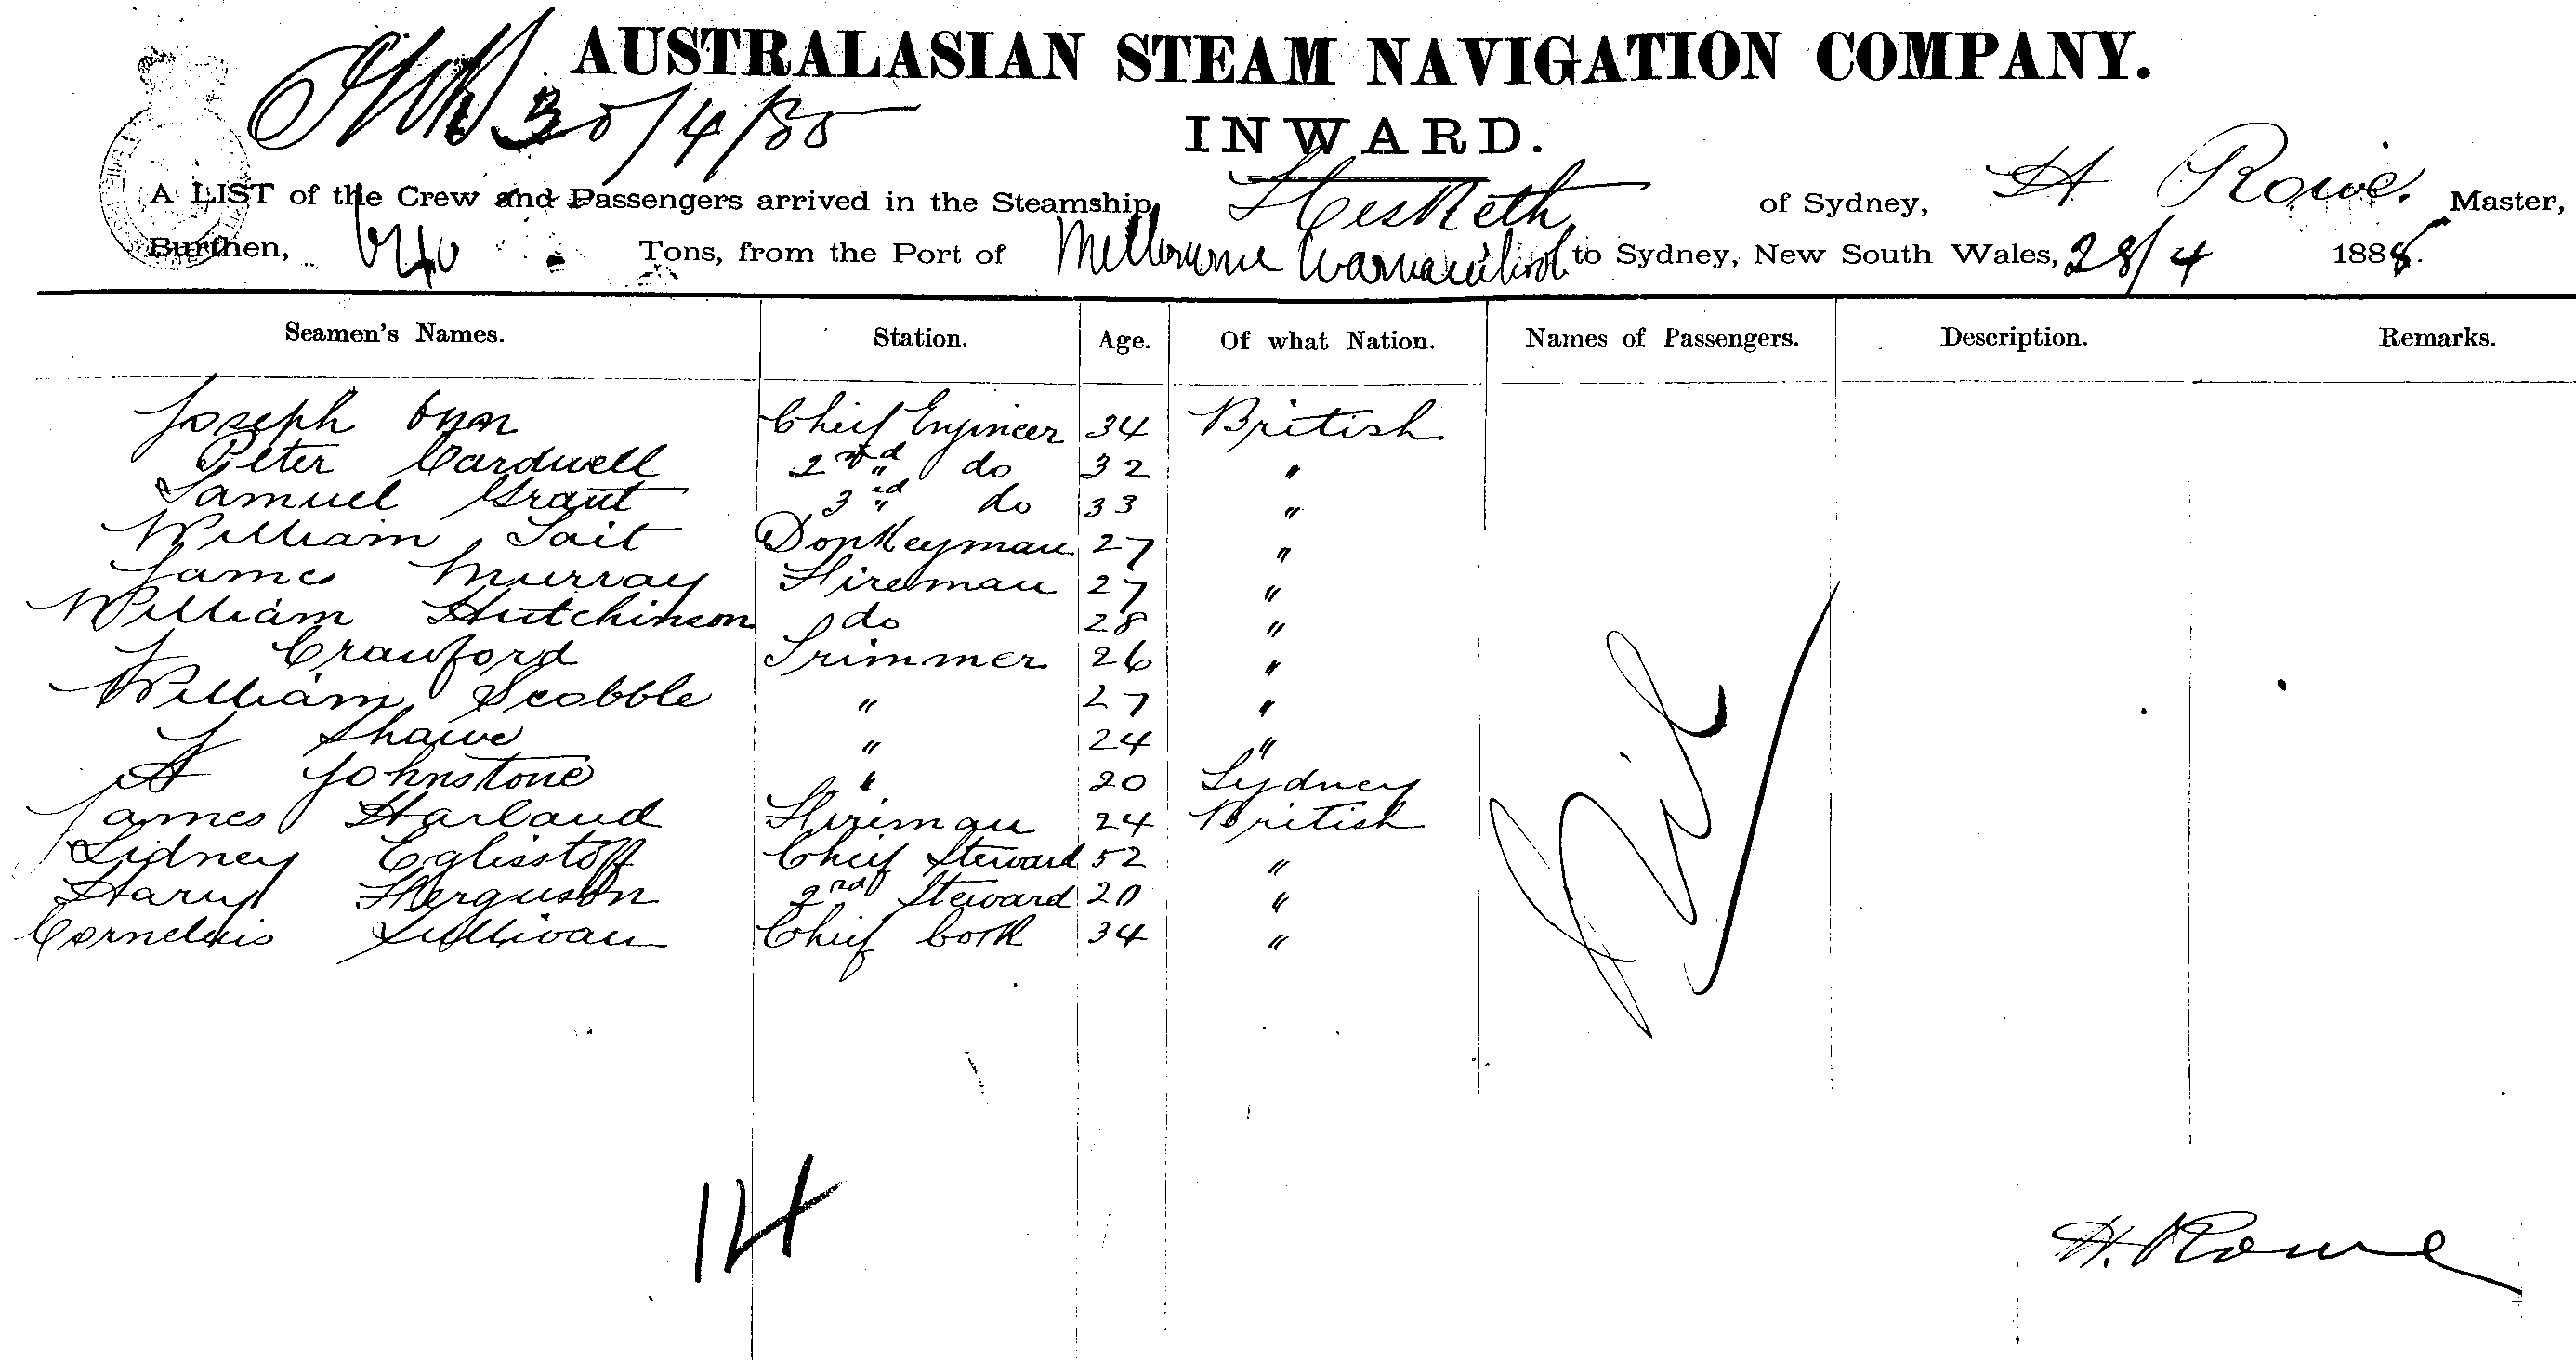 AUSTRALASIAN STEAM NAVIGATION COMPANY.
30/4/88
INWARD.
A LIST of the Crew and Passengers arrived in the Steamship Hesketh of Sydney, H Rowe. Master,
Burthen, 640 Tons, from the Port of Melbourne Warrnambool to Sydney, New South Wales, 28/4 1888.
Seamen's Names. Station. Age. Of what Nation. Names of Passengers. Description. Remarks.
Joseph Chief Engineer 34 British
Peter Cardwell 2nd do 32 "
Samuel Grant 3rd do 33 "
William Tait Donkeyman 27 "
James Murray Fireman 27 "
William Hutchinson do 28 "
J Crawford Trimmer 26 "
William Scobble " 27 "
J Shawe " 24 "
A Johnstone " 20 Sydney
James Harland Fireman 24 British
Sidney Eglisstoff Chief Steward 52 "
Harry Fferguson 2nd Steward 20 "
Cornelius Sullivan Chief Cook 34 "
Nil
14
H. Rowe